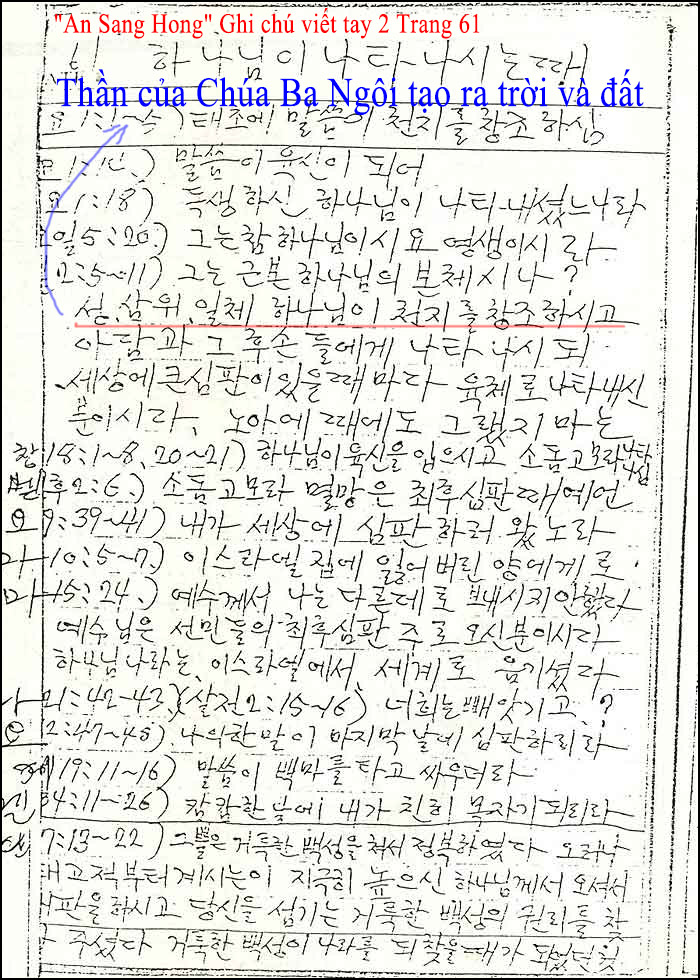 "An Sang Hong" Ghi chú viết tay 2 Trang 61
하나님이 나타나시는 때
Thần của Chúa Ba Ngôi tạo ra trời và đất
요 1:1~5) 태초에 말씀이 천지를 창조하심
말씀이 육신이 되어
요 1:18) 독생하신 하나님이 나타내셨느니라
일 5:20) 그는 참 하나님이시요 영생이시라
2:5~11) 그는 근본 하나님의 본체시나?
성.삼위.일체 하나님이 천지를 창조하시고
아담과 그 후손들에게 나타나시되
세상에 큰 심판이 있을 때마다 육체로 나타내신
분이시라, 노아에 때에도 그랬지마는
창 18:1~8, 20~21) 하나님이 육신을 입으시고 소돔고모라 나타나심
벧후 2:6.) 소돔고모라 멸망은 최후심판 때에언
요 9:39~41) 내가 세상에 심판하러 왔노라
마 10:5~7.) 이스라엘 집에 잃어버린 양에게로
마 15:24.) 예수께서 나는 다른데로 보내시지 안했다
예수님은 선민들의 최후심판주로 오신분이시다
하나님 나라는, 이스라엘에서, 세계로 옴기셨다
21:42-43,) (살전 2:15~16) 너희는 빼앗기고.?
요 12:47~48) 나의 한 말이 마지막 날에 심판하리라
19:11~16) 말씀이 백마를 타고 싸우더라
겔 34:11~26) 캄캄한 날에 내가 친히 목자가 되리라
7:13~22) 그 뿔은 거룩한 백성을 쳐서 정복하였다
태고적부터 계시는이 지극히 높으신 하나님께서 오셔서
심판을 하시고 당신을 섬기는 거룩한 백성의 권리를 찾
아 주셨다 거룩한 백성이 나라를 되찾을 때가 되었던 것